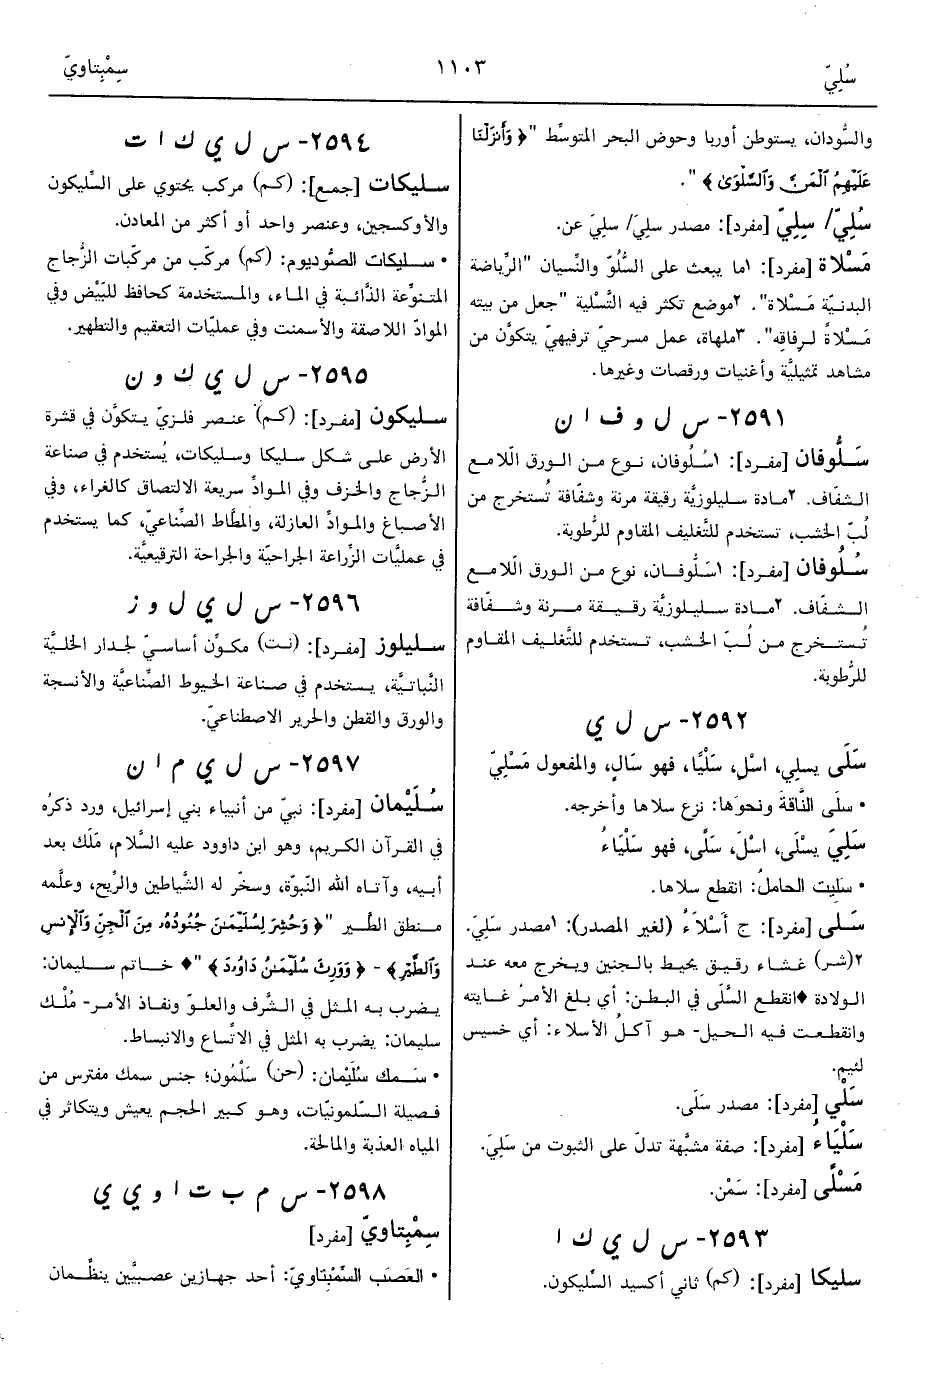 سُلِيّ
١١٠٣
سِمْبِتاويّ
والسُّودان، يستوطن أوربا وحوض البحر المتوسِّط "﴿ وَأَنزَلْنَا
عَلَيْهِمُ الْمَنَّ وَالسَّلْوَىٰ ﴾".
سُلِيّ/ سِلِيّ [مفرد]: مصدر سلِيَ/ سلِيَ عن.
مَسْلاة [مفرد]: ١ما يبعث على السُّلُوّ والنِّسيان "الرِّياضة
البدنيّة مَسْلاة". ٢موضع تكثر فيه التَّسْلية "جعل من بيته
مَسْلاةً لرِفاقِه". ٣ملهاة، عمل مسرحيّ ترفيهيّ يتكوَّن من
مشاهد تمثيليَّة وأغنيات ورقصات وغيرها.
٢٥٩١- س ل و ف ا ن
سَلُّوفان [مفرد]: ١سُلُوفان، نوع من الورق اللاّمع
الشفَّاف. ٢مادة سليلوزيَّة رقيقة مرنة وشفَّافة تُستخرج من
لُبّ الخشب، تستخدم للتَّغليف المقاوم للرُّطوبة.
سُلُوفان [مفرد]: ١سَلُّوفان، نوع من الورق اللاّمع
الشفَّاف. ٢مادة سليلوزيَّة رقيقة مرنة وشفَّافة
تُستخرج من لُبّ الخشب، تستخدم للتَّغليف المقاوم
للرُّطوبة.
٢٥٩٢- س ل ي
سَلَى يسلِي، اسْلِ، سَلْيًا، فهو سَالٍ، والمفعول مَسْلِيّ
• سلَى النَّاقةَ ونحوَها: نزع سلاها وأخرجه.
سَلِيَ يسْلَى، اسْلَ، سَلًى، فهو سَلْيَاءُ
• سَلِيَت الحاملُ: انقطع سلاها.
سَلًى [مفرد]: ج أَسْلاءُ (لغير المصدر): ١مصدر سَلِيَ.
٢(شر) غشاء رقيق يحيط بالجنين ويخرج معه عند
الولادة ♦انقطع السَّلَى في البطن: أي بلغ الأمرُ غايته
وانقطعت فيه الحيل- هو آكلُ الأسلاء: أي خسيس
لئيم.
سَلْي [مفرد]: مصدر سَلَى.
سَلْيَاءُ [مفرد]: صفة مشبَّهة تدلّ على الثبوت من سَلِيَ.
مَسْلًى [مفرد]: سَمْن.
٢٥٩٣- س ل ي ك ا
سليكا [مفرد]: (كم) ثاني أكسيد السِّليكون.
٢٥٩٤- س ل ي ك ا ت
سليكات [جمع]: (كم) مركب يحتوي على السِّليكون
والأوكسجين، وعنصر واحد أو أكثر من المعادن.
• سليكات الصُّوديوم: (كم) مركّب من مركّبات الزُّجاج
المتنوِّعة الذَّائبة في الماء، والمستخدمة كحافظ للبَيْض وفي
الموادّ اللاصقة والأسمنت وفي عمليّات التعقيم والتطهير.
٢٥٩٥- س ل ي ك و ن
سليكون [مفرد]: (كم) عنصر فلزيّ يتكوَّن في قشرة
الأرض على شكل سليكا وسليكات، يُستخدم في صناعة
الزُّجاج والخزف وفي الموادِّ سريعة الالتصاق كالغراء، وفي
الأصباغ والموادِّ العازلة، والمطّاط الصِّناعيّ، كما يستخدم
في عمليَّات الزِّراعة الجراحيّة والجراحة الترقيعيَّة.
٢٥٩٦- س ل ي ل و ز
سليلوز [مفرد]: (نت) مكوِّن أساسيّ لجدار الخليَّة
النَّباتيَّة، يستخدم في صناعة الخيوط الصِّناعيَّة والأنسجة
والورق والقطن والحرير الاصطناعيّ.
٢٥٩٧- س ل ي م ا ن
سُلَيْمَان [مفرد]: نبيّ من أنبياء بني إسرائيل، ورد ذكرُه
في القرآن الكريم، وهو ابن داوود عليه السَّلام، مَلَك بعد
أبيه، وآتاه الله النّبوّة، وسخَّر له الشَّياطين والرِّيح، وعلَّمه
منطق الطَّير "﴿ وَحُشِرَ لِسُلَيْمَٰنَ جُنُودُهُۥ مِنَ الْجِنِّ وَالْإِنسِ
وَالطَّيْرِ ﴾ - ﴿ وَوَرِثَ سُلَيْمَٰنُ دَاوُۥدَ ﴾ "♦ خاتم سليمان:
يضرب به المثل في الشَّرف والعلوّ ونفاذ الأمر- مُلْك
سليمان: يضرب به المثل في الاتِّساع والانبساط.
• سَمك سُلَيْمان: (حن) سَلْمُون؛ جنس سمك مفترس من
فصيلة السَّلمونيّات، وهو كبير الحجم يعيش ويتكاثر في
المياه العذبة والمالحة.
٢٥٩٨- س م ب ت ا و ي ي
سِمْبِتاويّ [مفرد]
• العَصَب السِّمْبِتاويّ: أحد جهازين عصبيَّين ينظِّمان